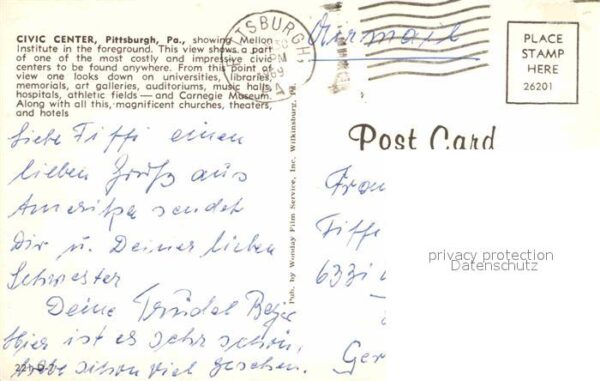 CIVIC CENTER, Pittsburgh, Pa., showing Mellon
Institute in the foreground. This view shows a part
of one of the most costly and impressive civic
centers to be found anywhere. From this point of
view one looks down on universities, libraries,
memorials, art galleries, auditoriums, music halls,
hospitals, athletic fields — and Carnegie Museum.
Along with all this, magnificent churches, theaters,
and hotels
Liebe Fiffi einen
lieben Gruß aus
Amerika sendet
Dir u. Deiner lieben
Schwester
Deine Trudel
Hier ist es sehr schön,
Habe schon viel gesehen.
Pub. by Wonday Film Service, Inc. Wilkinsburg, PA.
PITTSBURGH,
PM
Airmail
PLACE
STAMP
HERE
26201
Post Card
Frau
Fiffi
privacy protection
Datenschutz
Ger